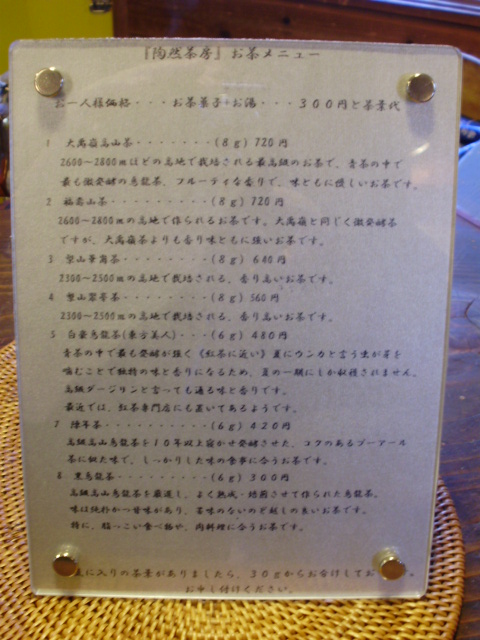 『陶然茶房』お茶メニュー
お一人様価格・・・お茶菓子・お湯・・・３００円と茶葉代
1 大禹嶺高山茶・・・・・・・(８ｇ) 720円
2600〜2800ｍほどの高地で栽培される最高級のお茶で、青茶の中で
最も微発酵の烏龍茶、フルーティな香りで、味ともに優しいお茶です。
2 福壽山茶・・・・・・・・・(８ｇ) 720円
2600〜2800ｍの高地で作られるお茶です。大禹嶺と同じく微発酵茶
ですが、大禹嶺茶よりも香り味ともに強いお茶です。
3 梨山華崗茶・・・・・・・・(８ｇ) 640円
2300〜2500ｍの高地で栽培される、香り高いお茶です。
4 梨山翠峰茶・・・・・・・・(８ｇ) 560円
2300〜2500ｍの高地で栽培される、香り高いお茶です。
5 白毫烏龍茶(東方美人)・・・(６ｇ) 480円
青茶の中で最も発酵が強く《紅茶に近い》夏にウンカと言う虫が芽を
噛むことで独特の味と香りになるため、夏の一期にしか収穫されません。
高級ダージリンと言っても通る味と香りです。
最近では、紅茶専門店にも置いてあるようです。
7 陳年茶・・・・・・・・・(６ｇ) ４２０円
高級高山烏龍茶を１０年以上寝かせ発酵させた、コクのあるプーアール
茶に似た味で、しっかりした味の食事に合うお茶です。
8 黒烏龍茶・・・・・・・・(６ｇ) ３００円
高級高山烏龍茶を厳選し、よく熟成・焙煎させて作られた烏龍茶。
味は純粋かつ甘味があり、苦味のないのど越しの良いお茶です。
特に、脂っこい食べ物や、肉料理に合うお茶です。
に入りの茶葉がありましたら、３０ｇからお分けしてお
お申し付けください。